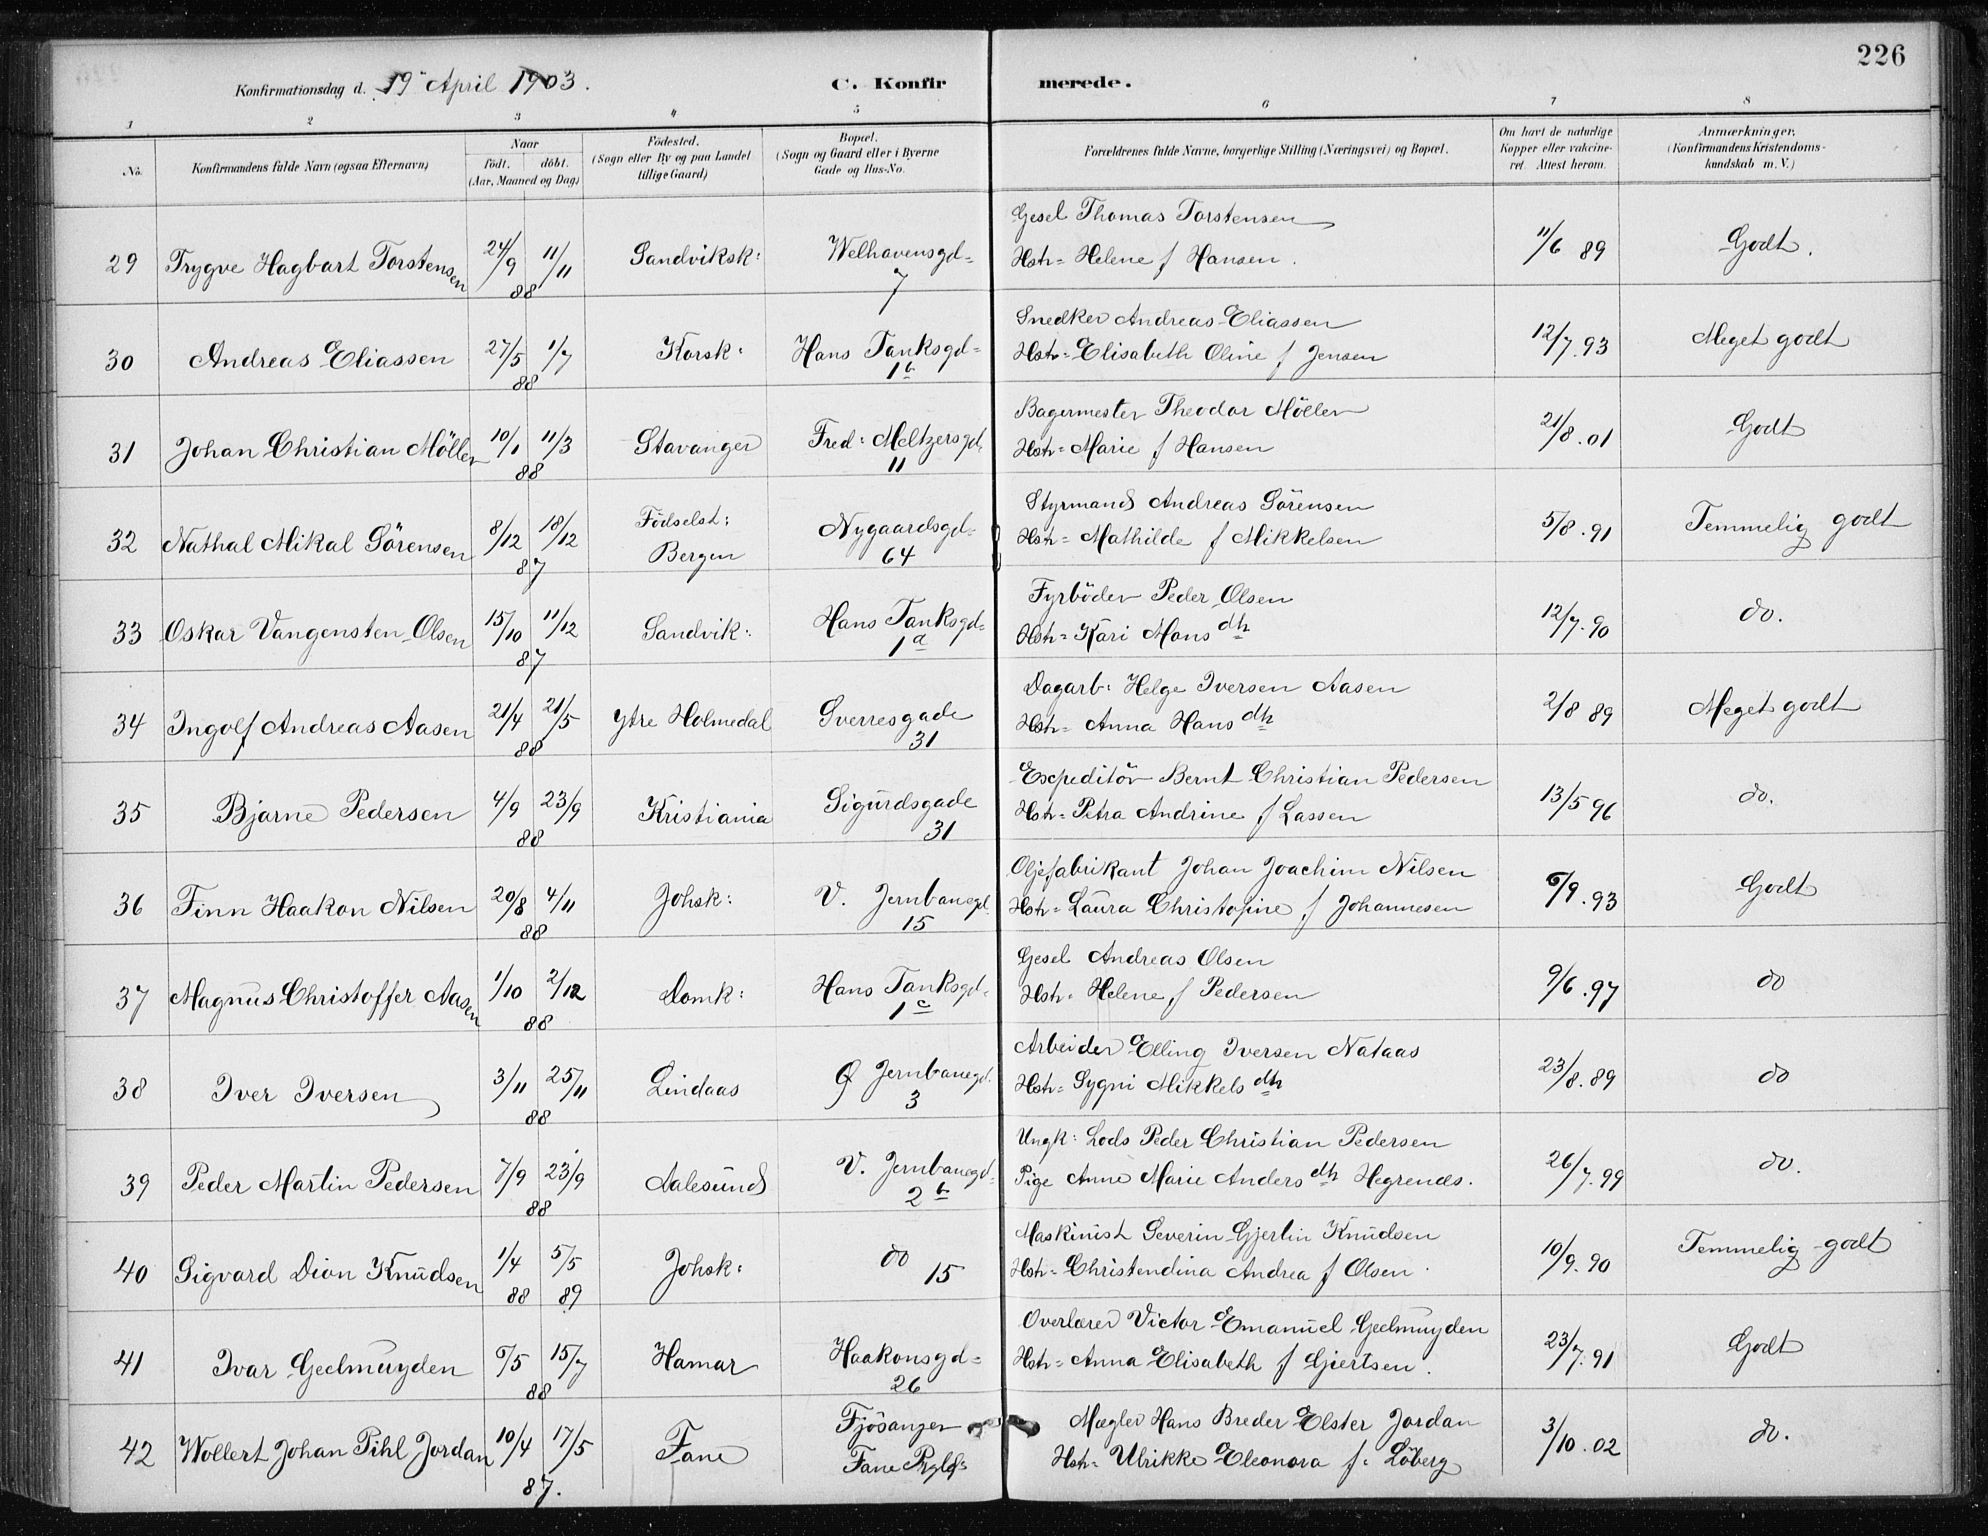 226
Konfirmationsdag d. 19 April 1903. C. Konfirmerede.
1 2 3 4 5 6 7 8
No. Konfirmandens fulde Navn (ogsaa Efternavn) Naar født. døbt. (Aar, Maaned og Dag) Fødested. (Sogn eller By og paa Landet tillige Gaard) Bopæl. (Sogn og Gaard eller i Byerne Gade og Hus-No. Forældrenes fulde Navne, borgerlige Stilling (Næringsvei) og Bopæl. Om havt de naturlige Kopper eller vakcineret. Attest herom. Anmærkninger, (Konfirmandens Kristendomskundskab m. V.)
29 Trygve Hagbart Torstensen 24/9 11/11 88 Sandviksk: Welhavensgd= 7
Gesel Thomas Torstensen
Hstr= Helene f Hansen. 11/6 89 Godt.
30 Andreas Eliassen 27/5 1/7 88 Korsk: Hans Tanksgd= 1b
Snedker Andreas Eliassen
Hstr= Elisabeth Oline f Jensen 12/7.93 Meget godt
31 Johan Christian Möller 10/1 11/3 88 Stavanger Fred: Meltzersgd. 11
Bagermester Theodor Möller
Hstr= Marie f Hansen 21/8.01 Godt
32 Nathal Mikal Sörensen 8/12 18/12 87 Födselst: Bergen Nygaardsgd= 64
Styrmand Andreas Sörensen
Hstr= Mathilde f Mikkelsen 5/8.91 Temmelig godt
33 Oskar Vangensten Olsen 15/10 11/12 87 Sandvik: Hans Tanksgd= 1a
Fyrböder Peder Olsen
Hstr= Kari Mons dtr 12/7.90 do.
34 Ingolf Andreas Aasen 21/4 21/5 88 Ytre Holmedal Sverresgade 31
Dagarb: Helge Iversen Aasen
Hstr= Anna Hans dtr 2/8 89 Meget godt
35 Bjarne Pedersen 4/9 23/9 88 Kristiania Sigurdsgade 31
Expeditör Bernt Christian Pedersen
Hstr= Petra Andrine f Lassen 13/5 96 do.
36 Finn Haakon Nilsen 20/8 4/11 88 Johsk: V. Jernbanegd. 15
Oljefabrikant Johan Joachim Nilsen
Hstr= Laura Christofine f Johannesen 6/9.93 Godt
37 Magnus Christoffer Aasen 1/10 2/12 88 Domk: Hans Tanksgd= 1c
Gesel Andreas Olsen
Hstr= Helene f Pedersen 9/6.97 do
38 Iver Iversen 3/11 25/11 88 Lindaas Ø Jernbanegd. 3
Arbeider Elling Iversen Nataas
Hstr= Sygni Mikkels dtr 23/8.89 do
39 Peder Martin Pedersen 7/9 23/9 88 Aalesund V. Jernbanegd= 2b
Ungk: Lods Peder Christian Pedersen
Pige Anne Marie Anders dtr Hegrends. 26/7.99 do.
40 Sigvard Dion Knudsen 1/4 88 5/5 89 Johsk: do 15
Maskinist Severin Gjertin Knudsen
Hstr= Christendina Andrea f Olsen. 10/9.90 Temmelig godt
41 Ivar Geelmuyden 6/5 15/7 88 Hamar Haakonsgd= 26
Overlærer Victor Emanuel Geelmuyden
Hstr= Anna Elisabeth f Gjertsen. 23/7.91 Godt
42 Wollert Johan Pihl Jordan 10/4 17/5 87. Fane Fjösanger Fane
Mægler Hans Breder Elster Jordan
Hstr= Ulrikke Eleonora f. Löberg 3/10.02 do.